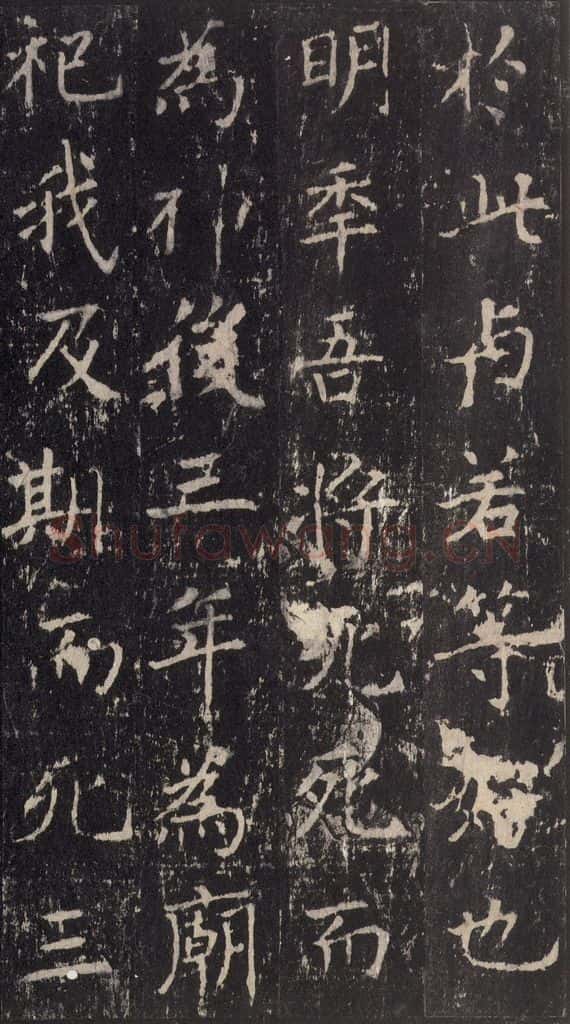 於此与若等也
明秊吾将死死而
為神後三年為廟
祀我及期而死三
Shufawang.CN